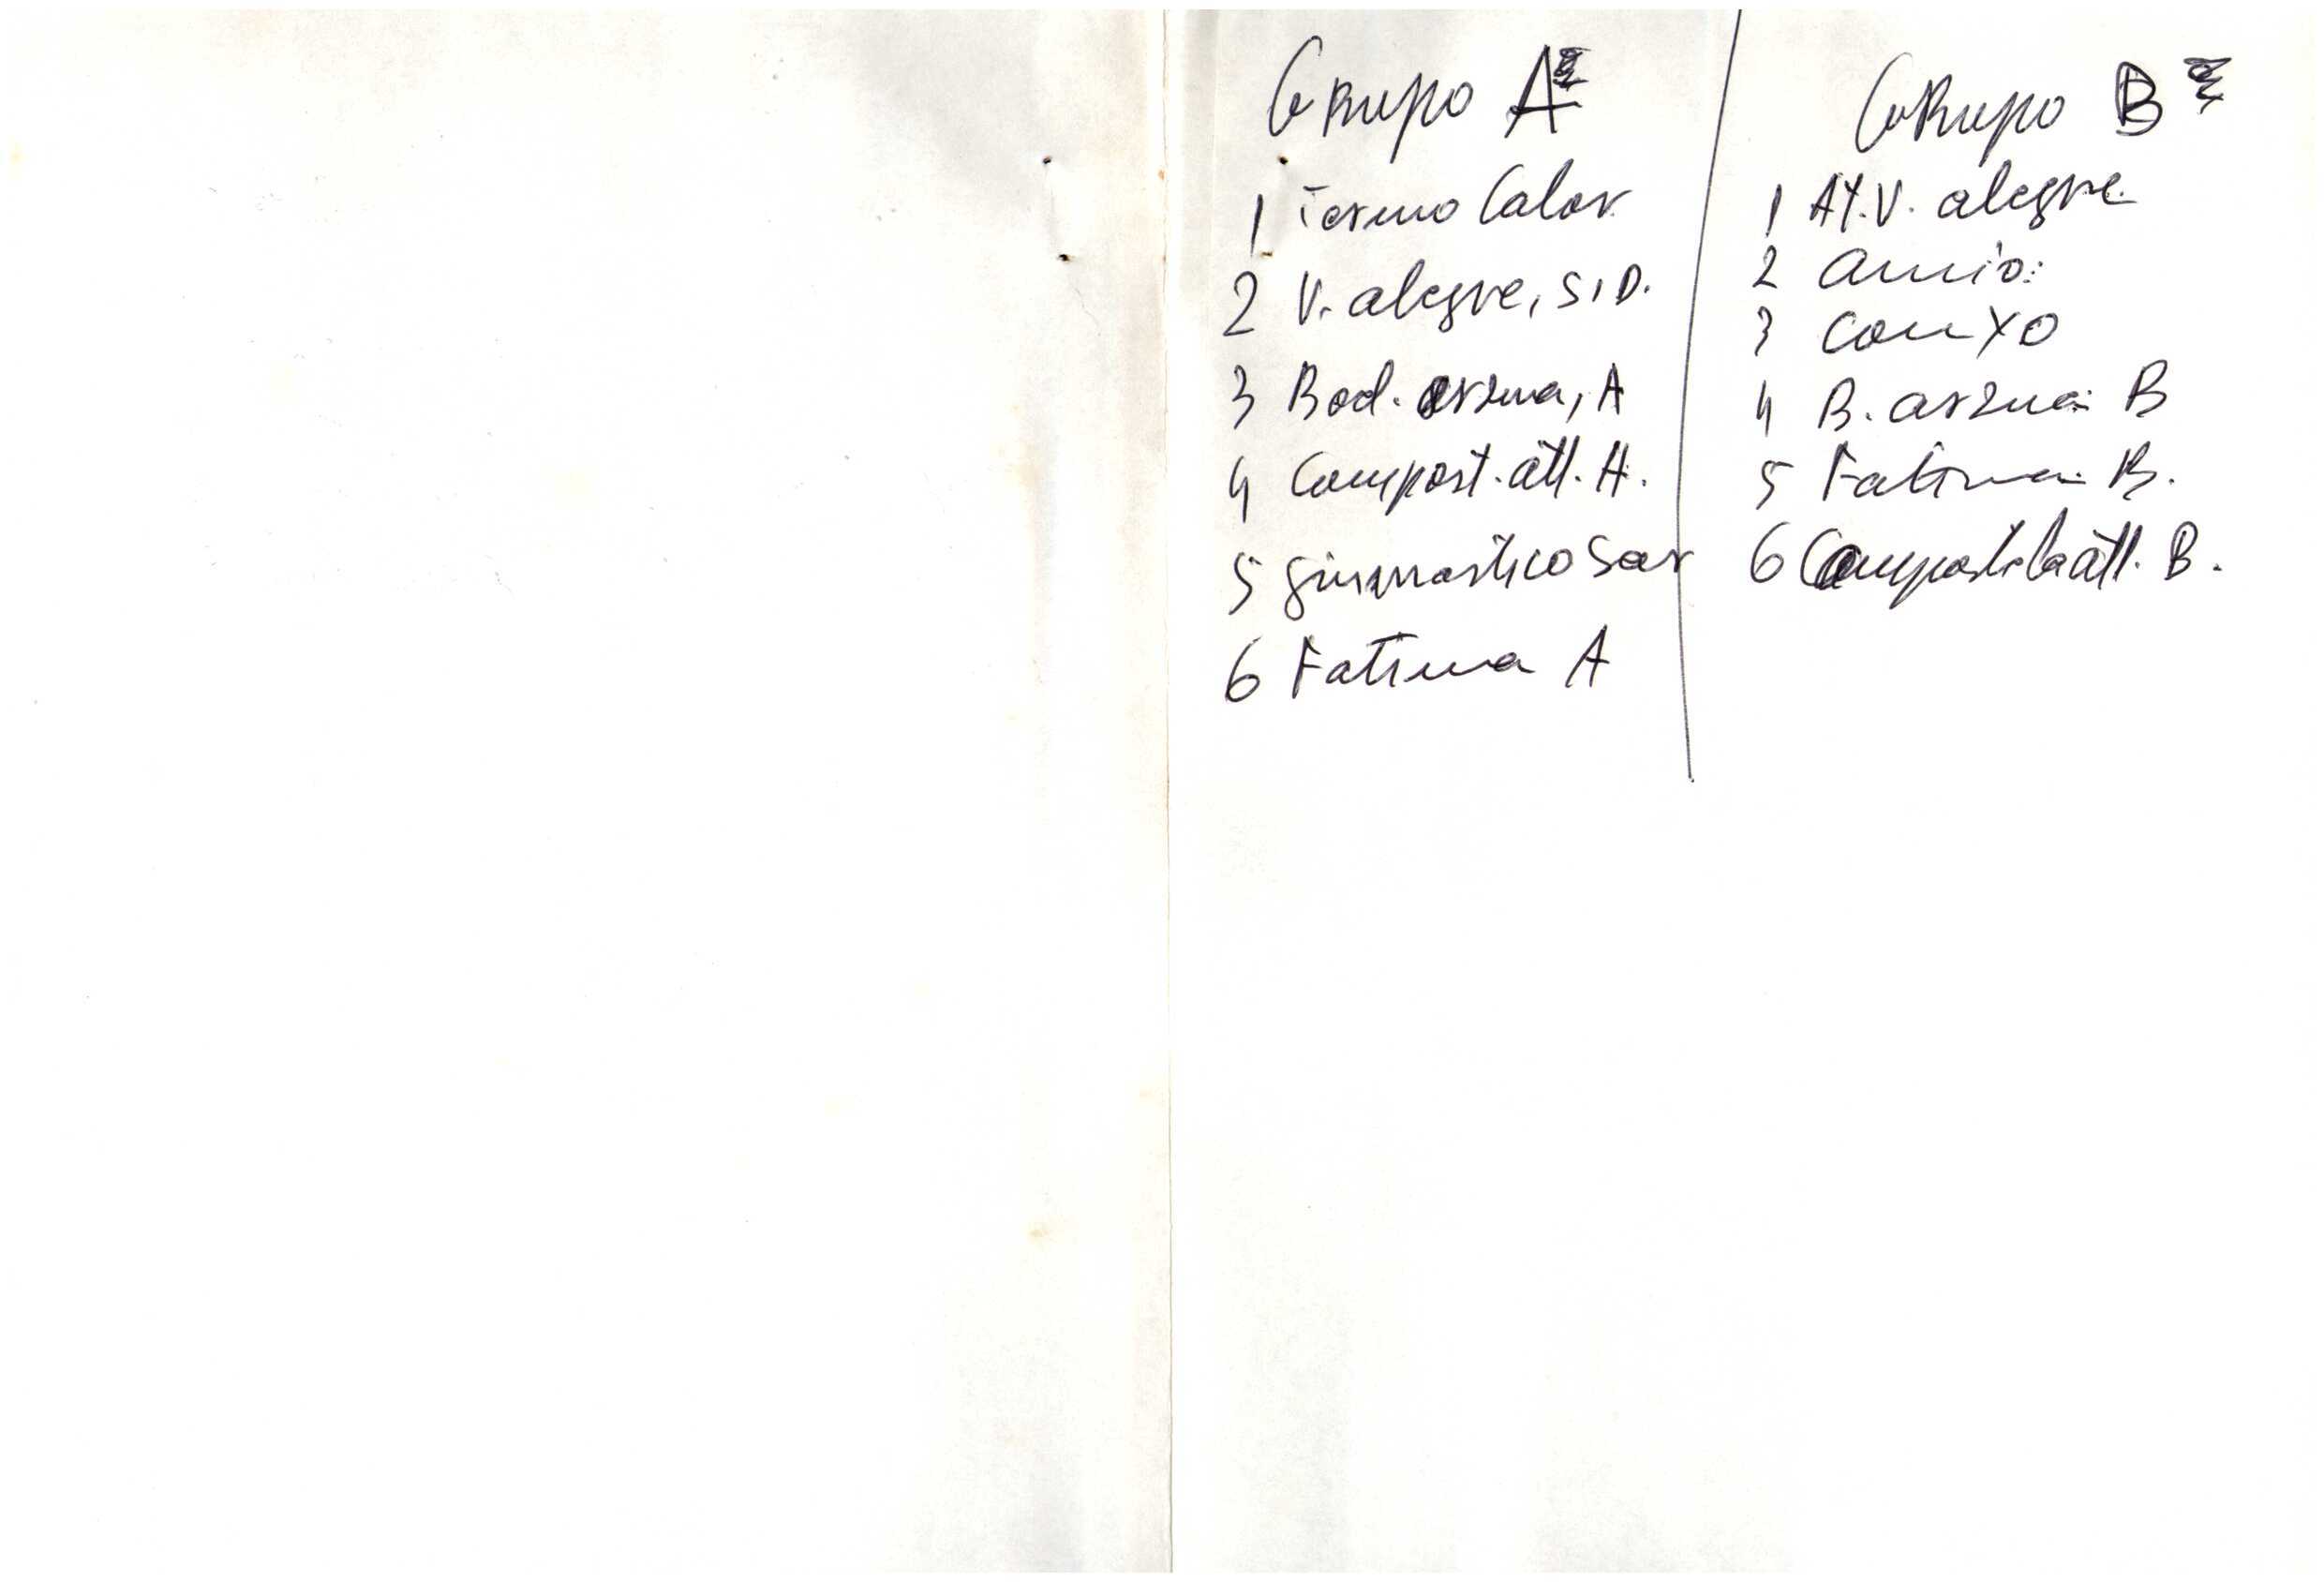 Grupo A
1 Termo Calor.
2 V. alegre, S.D.
3 Bod. arzua, A
4 Compost. átl. A.
5 gimnastico Sar
6 Fatima A
Grupo B
1 At. V. alegre.
2 amio:
3 conxo
4 B. arzua: B
5 Fatima: B.
6 Compostela átl. B.